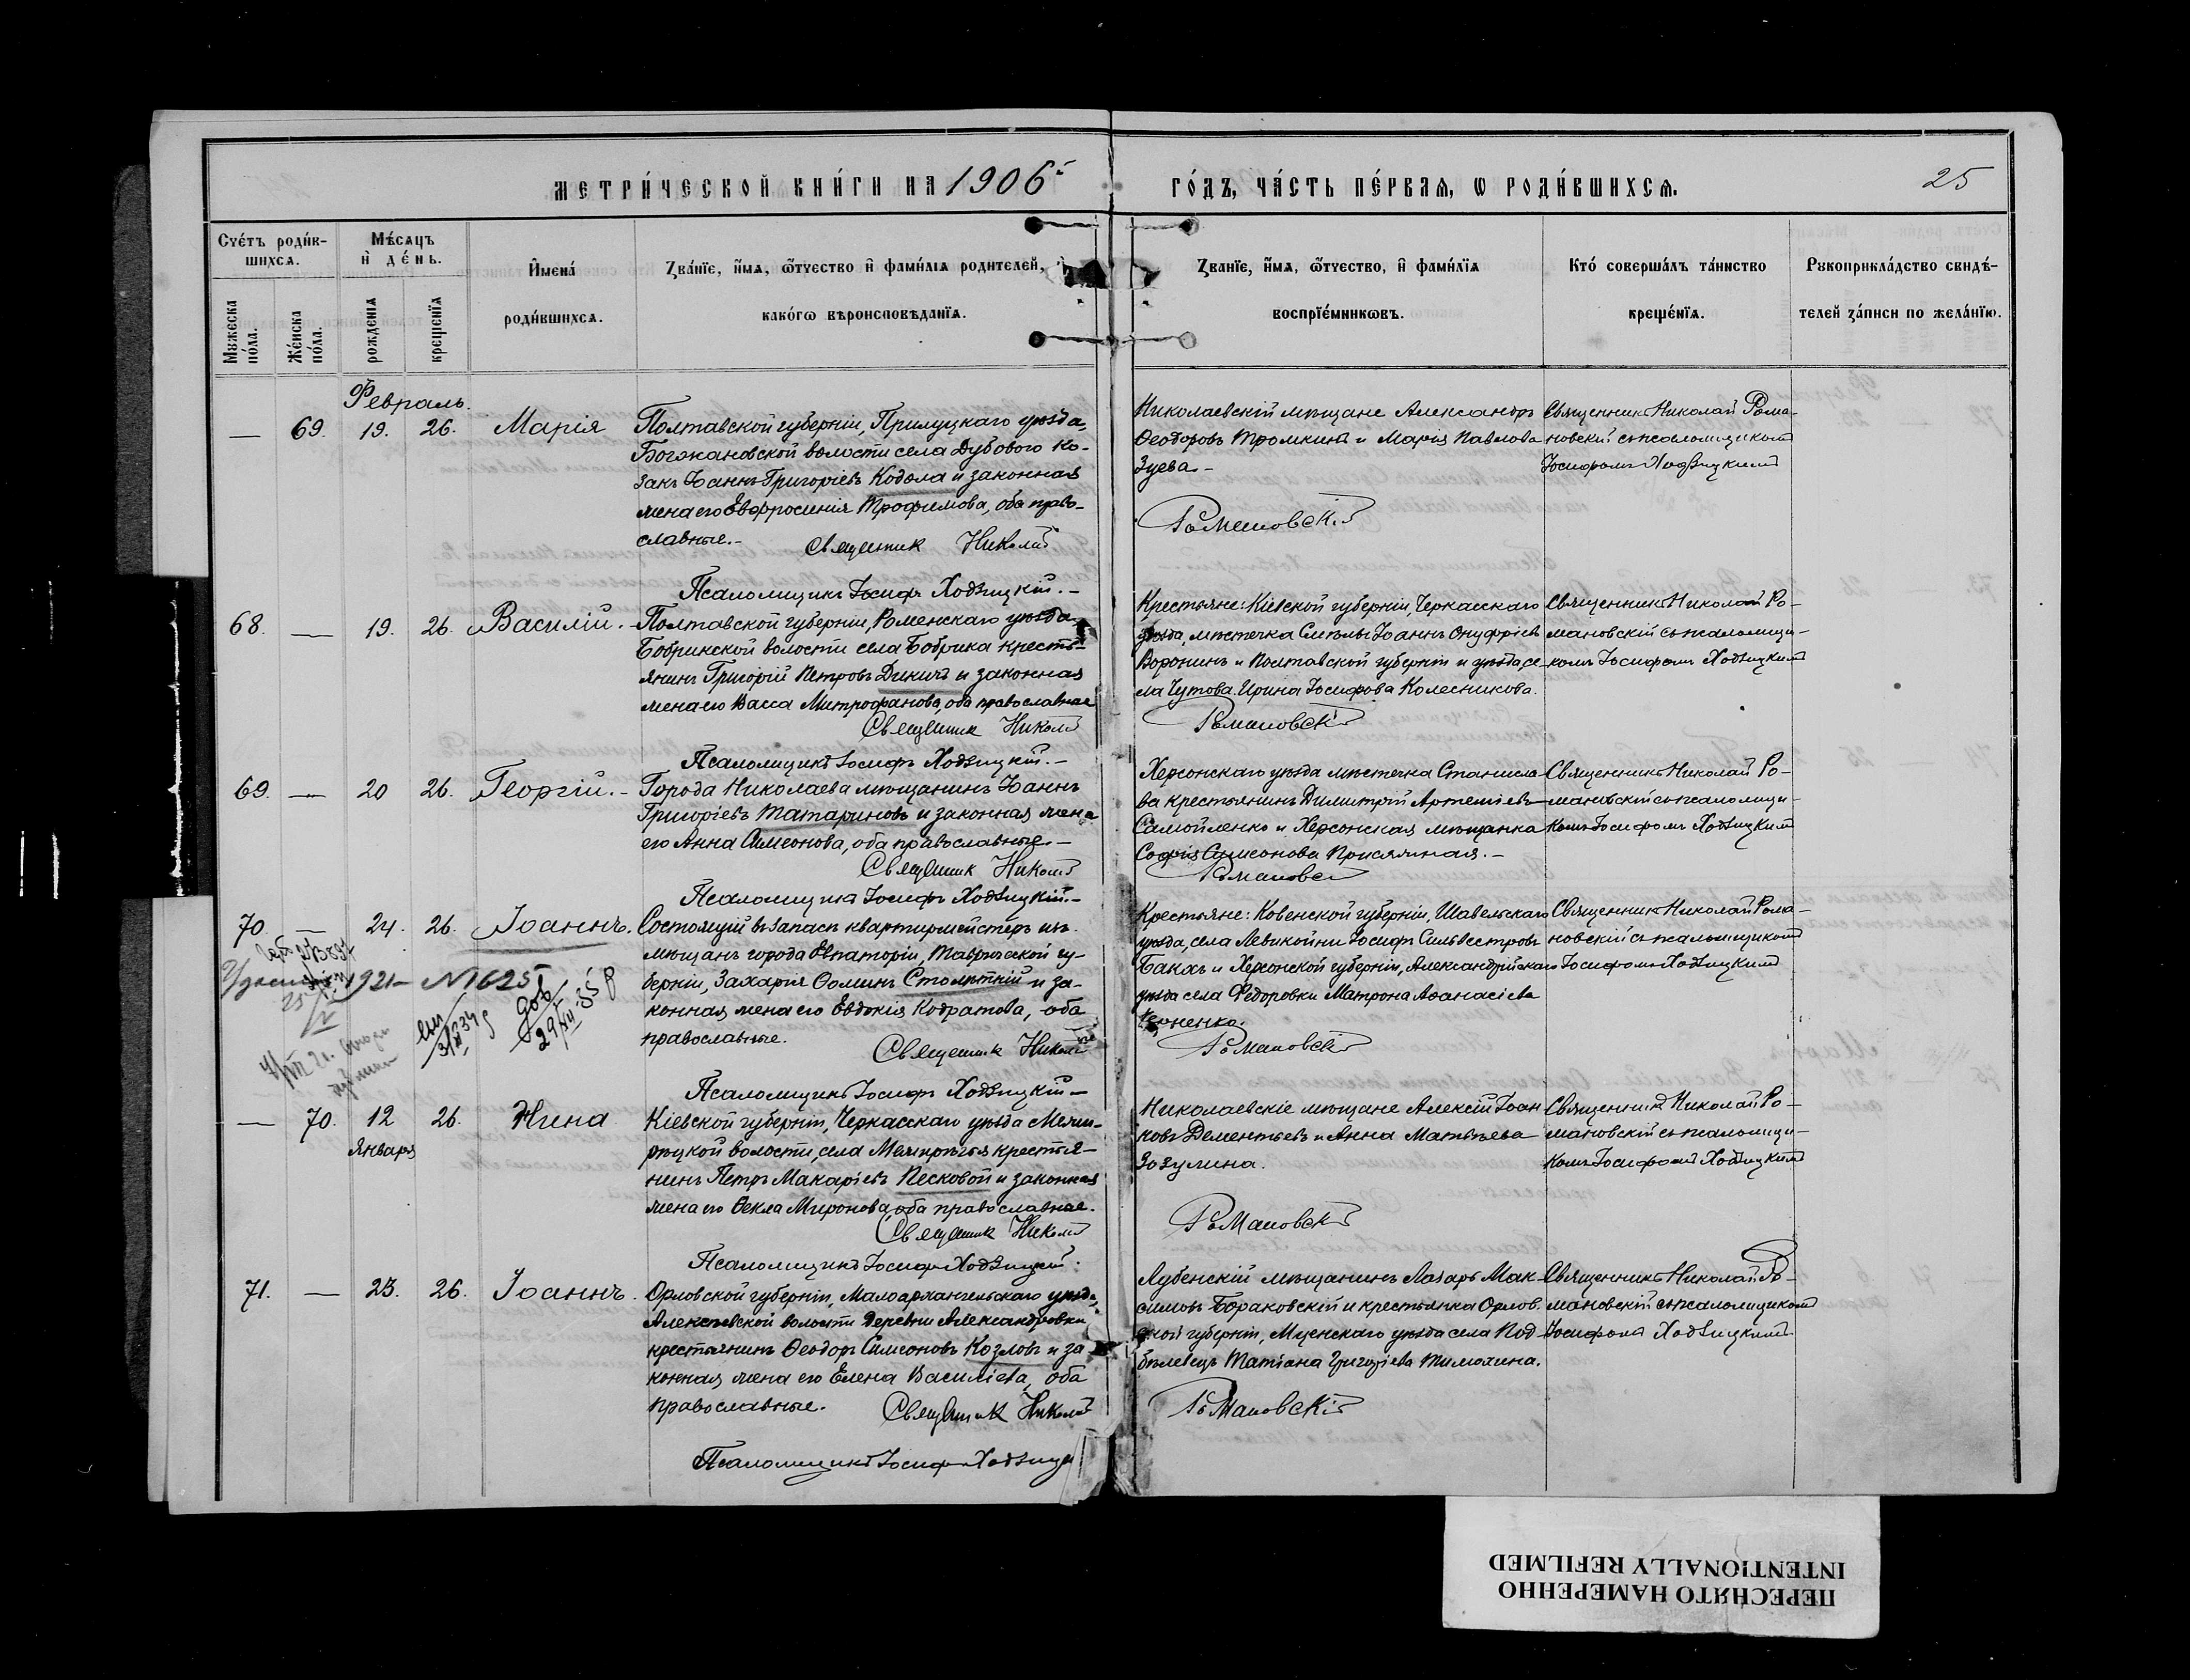 МЕТРИ́ЧЕСКОЙ КНИ́ГИ НА 1906й ГО́ДЪ, ЧА́СТЬ ПЕ́РВАЯ, Ѡ РОДИ́ВШИХСЯ. 25
Сче́тъ роди́в-
шихся.
Мꙋжеска по́ла.
Же́нска по́ла.
Мѣ́сяцъ
и҆ де́нь.
рожденїя
крещенїя
И҆мена́
роди́вшихся.
Зва́нїе, и҆́мя, ѻ҆́тчество и҆ фами́лїя родителей, и҆
како́гѡ вѣроисповѣданїя.
Зва́нїе, и҆́мя, ѻ҆́тчество, и҆ фами́лїя
воспрїе́мникѡвъ.
Кто́ соверша́лъ та́инство
креще́нїя.
Рꙋкоприкла́дство свидѣ́-
телей за́писи по жела́нїю.
Февраль.
— 69. 19. 26. Марія
Полтавской губерніи, Прилуцкаго уѣзда,
Богдановской волости села Дубового ко-
закъ Іоаннъ Григоріевъ Кодола и законная
жена его Евфросинія Трофимова, оба право-
славные.-
Священник Николай
Романовскій
Псаломщикъ Іосифъ Ходзицкій.-
Николаевскій мѣщане Александръ
Ѳеодоровъ Тромкинъ и Марія Павлова
Зуева.-
Священникъ Николай Рома-
новскій съ псаломщикомъ
Іосифомъ Ходзицкимъ
68. — 19. 26. Василій.-
Полтавской губерніи, Роменскаго уѣзда
Бобрикской волости села Бобрика кресть-
янинъ Григорій Петровъ Дикичъ и законная
жена его Васса Митрофанова, оба православные
Священник Николай
Романовскій
Псаломщикъ Іосифъ Ходзицкій.-
Крестьяне: Кіевской губерніи, Черкасскаго
уѣзда, мѣстечка Смѣлы Іоаннъ Онуфріевъ
Воронинъ и Полтавской губерніи и уѣзда се-
ла Чутова Ирина Іосифова Колесникова.
Священникъ Николай Ро-
мановскій съ псаломщи-
комъ Іосифомъ Ходзицкимъ
69. — 20 26. Георгій.-
Города Николаева мѣщанинъ Іоаннъ
Григоріевъ Татариновъ и законная жена
его Анна Симеонова, оба православные.-
Священник Николай
Романовскій
Псаломщикъ Іосифъ Ходзицкій.-
Херсонскаго уѣзда мѣстечка Станисла-
ва крестьянинъ Димитрій Артеміевъ
Самойленко и Херсонская мѣщанка
Софія Симеонова Присяжная.-
Священникъ Николай Ро-
мановскій съ псаломщи-
комъ Іосифомъ Ходзицкимъ
70. — 24. 26. Іоаннъ.
1921- N 1625
Состоящій въ запасѣ квартирмейстеръ изъ
мѣщанъ города Евпаторіи, Таврической гу-
берніи, Захарія Ѳоминъ Столѣтній и за-
конная жена его Евдокія Кодратова, оба
православные.
Священник Николай
Романовскій
Псаломщикъ Іосифъ Ходзицкій-
Крестьяне: Ковенской губерніи, Шавельскаго
уѣзда, села Левикойни Іосифъ Сильвестровъ
Банхъ и Херсонской губерніи, Александрійскаго
уѣзда села Ѳедоровки Матрона Аѳанасіева
Священникъ Николай Рома-
новскій съ псаломщикомъ
Іосифомъ Ходзицкимъ
— 70. 12 26. Нина
Января
Кіевской губерніи, Черкасскаго уѣзда Межи-
рѣцкой волости, села Межирѣчья крестья-
нинъ Петръ Макаріевъ Песковой и законная
жена его Ѳекла Миронова, оба православные.
Священник Николай
Романовскій
Псаломщикъ Іосифъ Ходзицкій.
Николаевскіе мѣщане Алексій Іоан-
новъ Дементьевъ и Анна Матвѣева
Зозулина.
Священникъ Николай Ро-
мановскій съ псаломщи-
комъ Іосифомъ Ходзицкимъ
71. — 23. 26. Іоаннъ.
Орловской губерніи, Малоархангельскаго уѣзда,
Алексѣевской волости деревни Александровки
крестьянинъ Ѳеодоръ Симеоновъ Козловъ и за
конная жена его Елена Василіева, оба
православные.
Священник Николай
Романовскій
Псаломщикъ Іосифъ Ходзицкій
Лубенскій мѣщанинъ Лазарь Мак-
симовъ Бораковскій и крестьянка Орлов.
ской губерніи, Мценскаго уѣзда села Под-
бѣлевецъ Татіана Григоріева Тимохина.
Священникъ Николай Ро-
мановскій съ псаломщикомъ
Іосифомъ Ходзицкимъ
ПЕРЕСНЯТО НАМЕРЕННО
INTENTIONALLY REFILMED